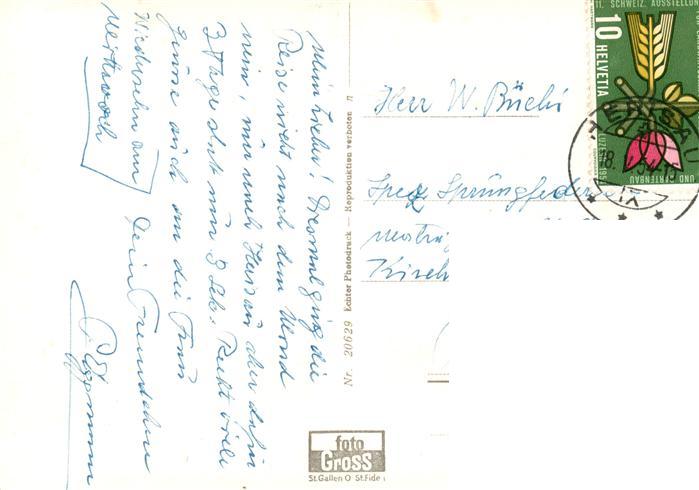 Mein Lieber! Diesmal ging die
Reise nicht nach dem Mond
nein, nur nach Herisau aber dafür
3 Tage statt nur 8 Std. Recht viele
Grüsse auch an die Frau
Wiedersehn am Dein Freund
Mittwoch
Nr. 20629 Echter Photodruck — Reproduktion verboten
Herr W. Büchi
Spez. Sprungfeder
Kirch
11. SCHWEIZ. AUSSTELLUNG
10 HELVETIA
UND GARTENBAU
LUZERN 195
HERISAU
18. VI
foto
Gross
St.Gallen O St.Fide